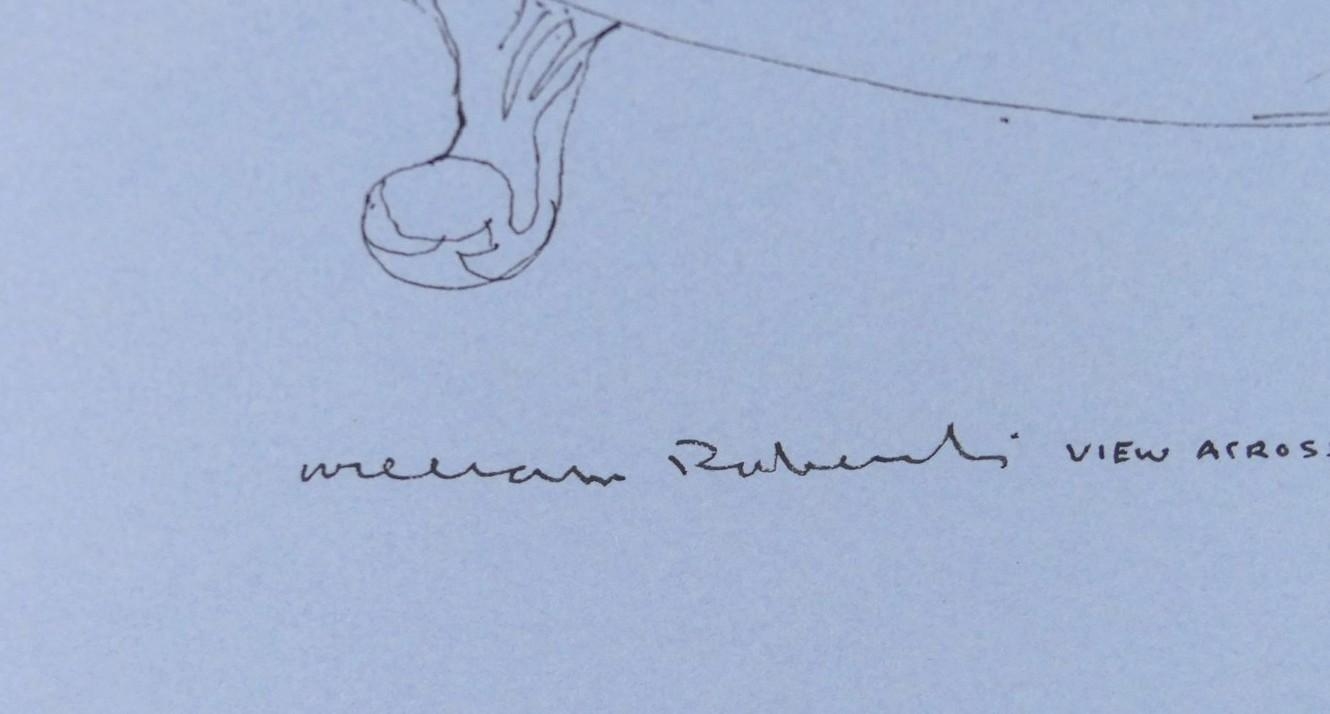 William Roberts VIEW ACROSS